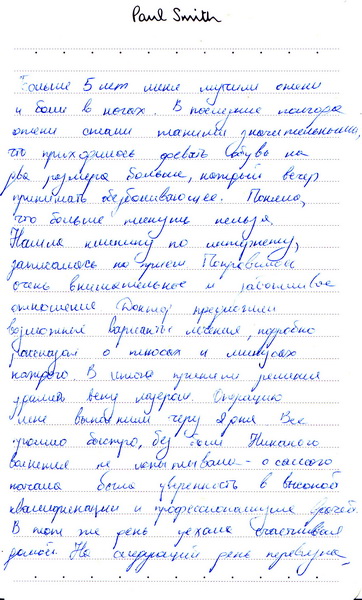 Paul Smith
Больше 5 лет меня мучили отеки
и боли в ногах. В последние полгода
отеки стали такими значительными,
что приходилось одевать обувь на
два размера больше, каждый вечер
принимать обезболивающее. Поняла,
что больше тянуть нельзя.
Нашла клинику по интернету,
записалась на прием Понравилось
очень внимательное и заботливое
отношение Доктор предложил
возможные варианты лечения, подробно
рассказал о плюсах и минусах
каждого. В итоге приняли решение
удалить вену лазером. Операцию
мне выполнили через 2 дня Все
прошло быстро, без боли Никакого
волнения не испытывала - с самого
начала была уверенность в высокой
квалификации и профессионализме врачей.
В тот же день уехала счастливая
домой. На следующий день